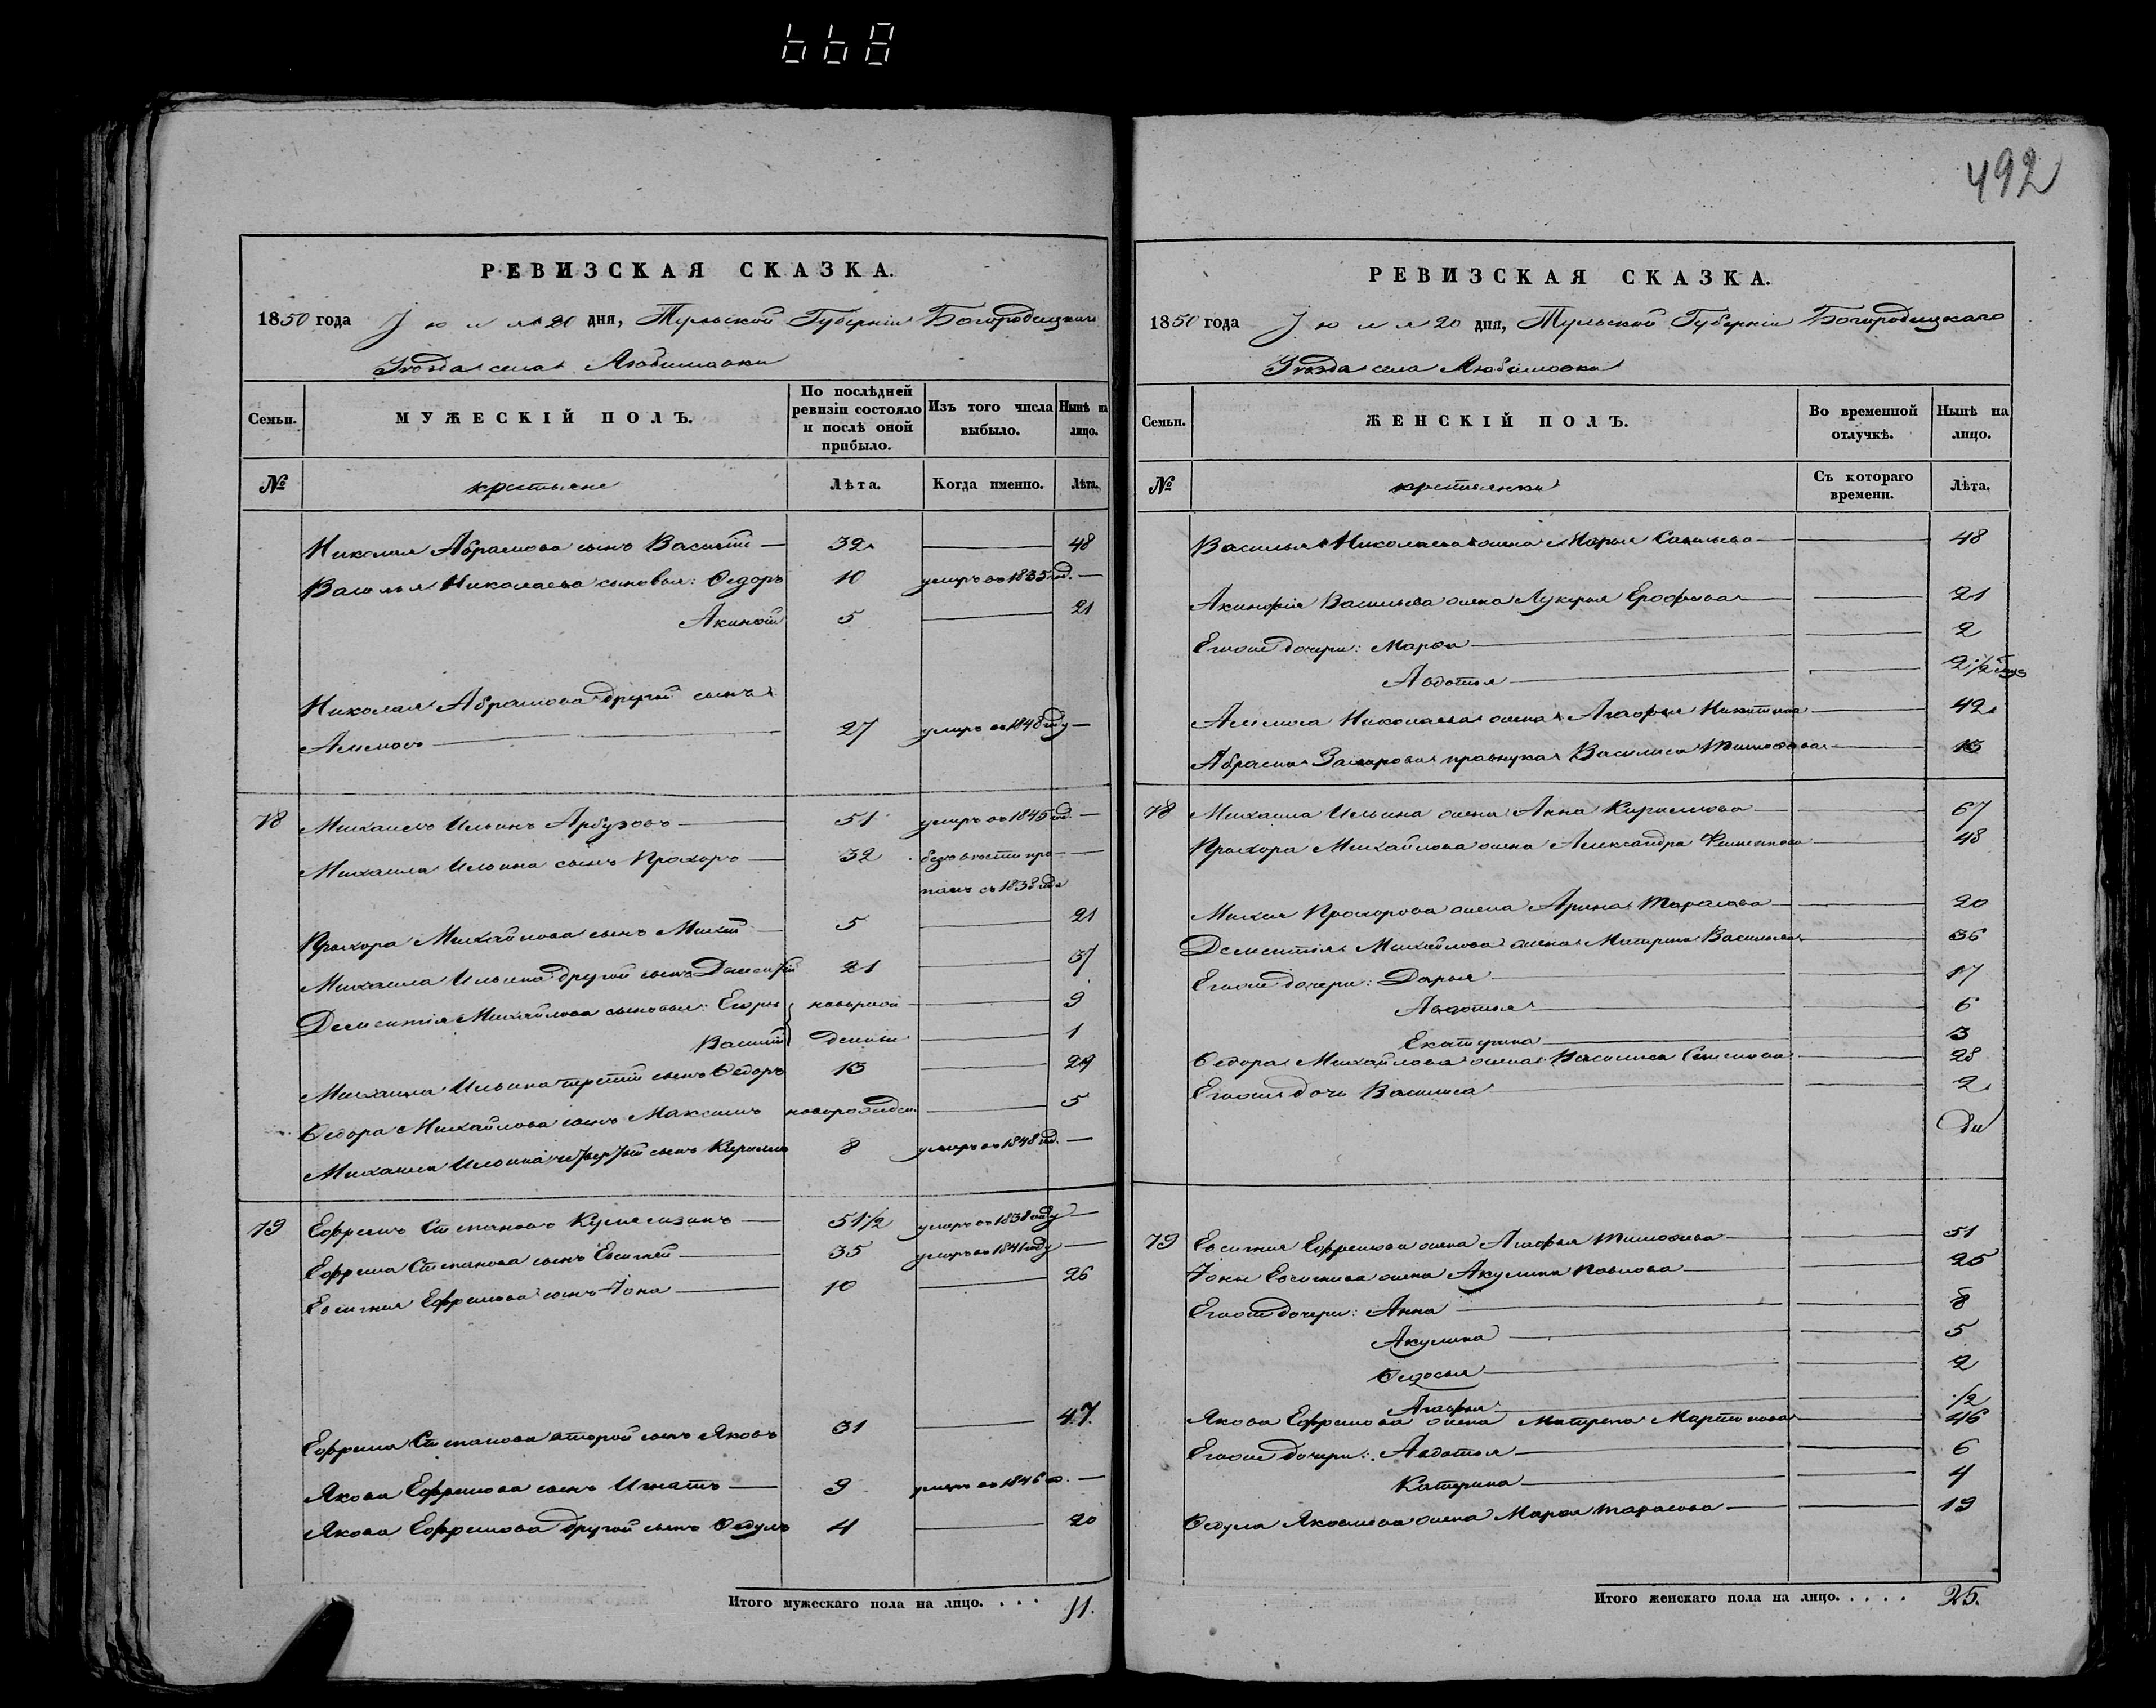 668
РЕВИЗСКАЯ СКАЗКА.
1850 года Июля 20 дня, Тульской Губерніи Богородицкаго
Уѣзда села Любимовки
Семьи. МУЖЕСКІЙ ПОЛЪ. По послѣдней ревизіи состояло и послѣ оной прибыло. Изъ того числа выбыло. Нынѣ на лицо.
№ крестьяне Лѣта. Когда именно. Лѣта.
Николая Абрамова сынъ Василій — 32 — 48
Василья Николаева сыновья: Ѳедоръ 10 умеръ въ 1835 год. —
Акинѳій 5 — 21
Николая Абрамова другой сынъ
— 27 умеръ въ 1848 году —
78 Михаилъ Ильинъ Арбузовъ — 51 умеръ въ 1845 год. —
Михаила Ильина сынъ Прохоръ — 32 безъ вѣсти про- —
палъ съ 1838 года
Прохора Михайлова сынъ Михѣй 5 — 21
Михаила Ильина другой сынъ Дементій 21 — 37
Дементія Михайлова сыновья: Егоръ новорож- — 9
Василій денны — 1
Михаила Ильина третій сынъ Ѳедоръ 13 — 29
Ѳедора Михайлова сынъ Максимъ новорожден. — 5
Михаила Ильина четвертый сынъ Кирила 8 умеръ въ 1848 год. —
79 Ефремъ Степановъ — 51 1/2 умеръ въ 1838 году —
Ефрема Степанова сынъ Евсигней — 35 умеръ въ 1841 году —
Евсигнея Ефремова сынъ Іона — 10 — 26
Ефрема Степанова второй сынъ Яковъ 31 — 47.
Якова Ефремова сынъ Игнатъ — 9 умеръ въ 1846 г. —
Якова Ефремова другой сынъ Ѳедулъ 4 — 20
Итого мужескаго пола на лицо. . . . 11.
492
РЕВИЗСКАЯ СКАЗКА.
1850 года Июля 20 дня, Тульской Губерніи Богородицкаго
Уѣзда села Любимовки
Семьи. ЖЕНСКІЙ ПОЛЪ. Во временной отлучкѣ. Нынѣ на лицо.
№ крестьянки Съ котораго времени. Лѣта.
Василья Николаева жена Марья Савельева — — 48
Акинѳія Васильева жена Лукерья Ерофѣева — — 21
Его же дочери: Марья — — 2
Авдотья — —
Николаева жена Агафья Никитина — — 42
Абрама Захарова правнука Василиса Тимофѣева — — 13
78 Михаила Ильина жена Анна Кирилова — — 67
Прохора Михайлова жена Александра — — 48
Михѣя Прохорова жена Арина Тарасова — — 20
Дементія Михайлова жена Матрена Васильева — 36
Его же дочери: Дарья — — 17
Авдотья — — 6
Екатерина — — 3
Ѳедора Михайлова жена Василиса Семенова — — 28
Его же дочь Василиса — — 2
79 Евсигнея Ефремова жена Агафья Тимоѳеева — — 51
Іоны Евсигнеева жена Акулина Павлова — — 25
Его же дочери: Анна — — 8
Акулина — — 5
Ѳедосья — — 2
Агафья — — 1/2
Якова Ефремова жена Матрена Мартинова — — 46
Его же дочери: Авдотья — — 6
Катерина — — 4
Ѳедула Яковлева жена Марья Тарасова — — 19
Итого женскаго пола на лицо. . . . . 25.